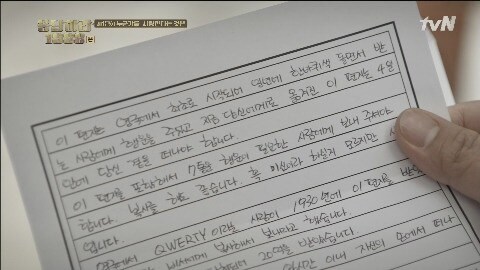 응답하라 1988
tvN
이 편지는 영국에서 최초로 시작되어 일년에 한바퀴씩 돌면서 받
는 사람에게 행운을 주었고 지금 당신에게로 옮겨진 이 편지는 4일
안에 당신 곁을 떠나야 합니다.
이 편지를 포함해서 7통을 행운이 필요한 사람에게 보내 주셔야
합니다. 복사를 해도 좋습니다. 혹 미신이라 하실지 모르지만 사
입니다.
QWERTY 이라는 사람이 1930년에 이 편지를 받
비서에게 복사해서 보내라고 했습니다.
20억을 받았습니다
이내 자신의 손에서 떠나